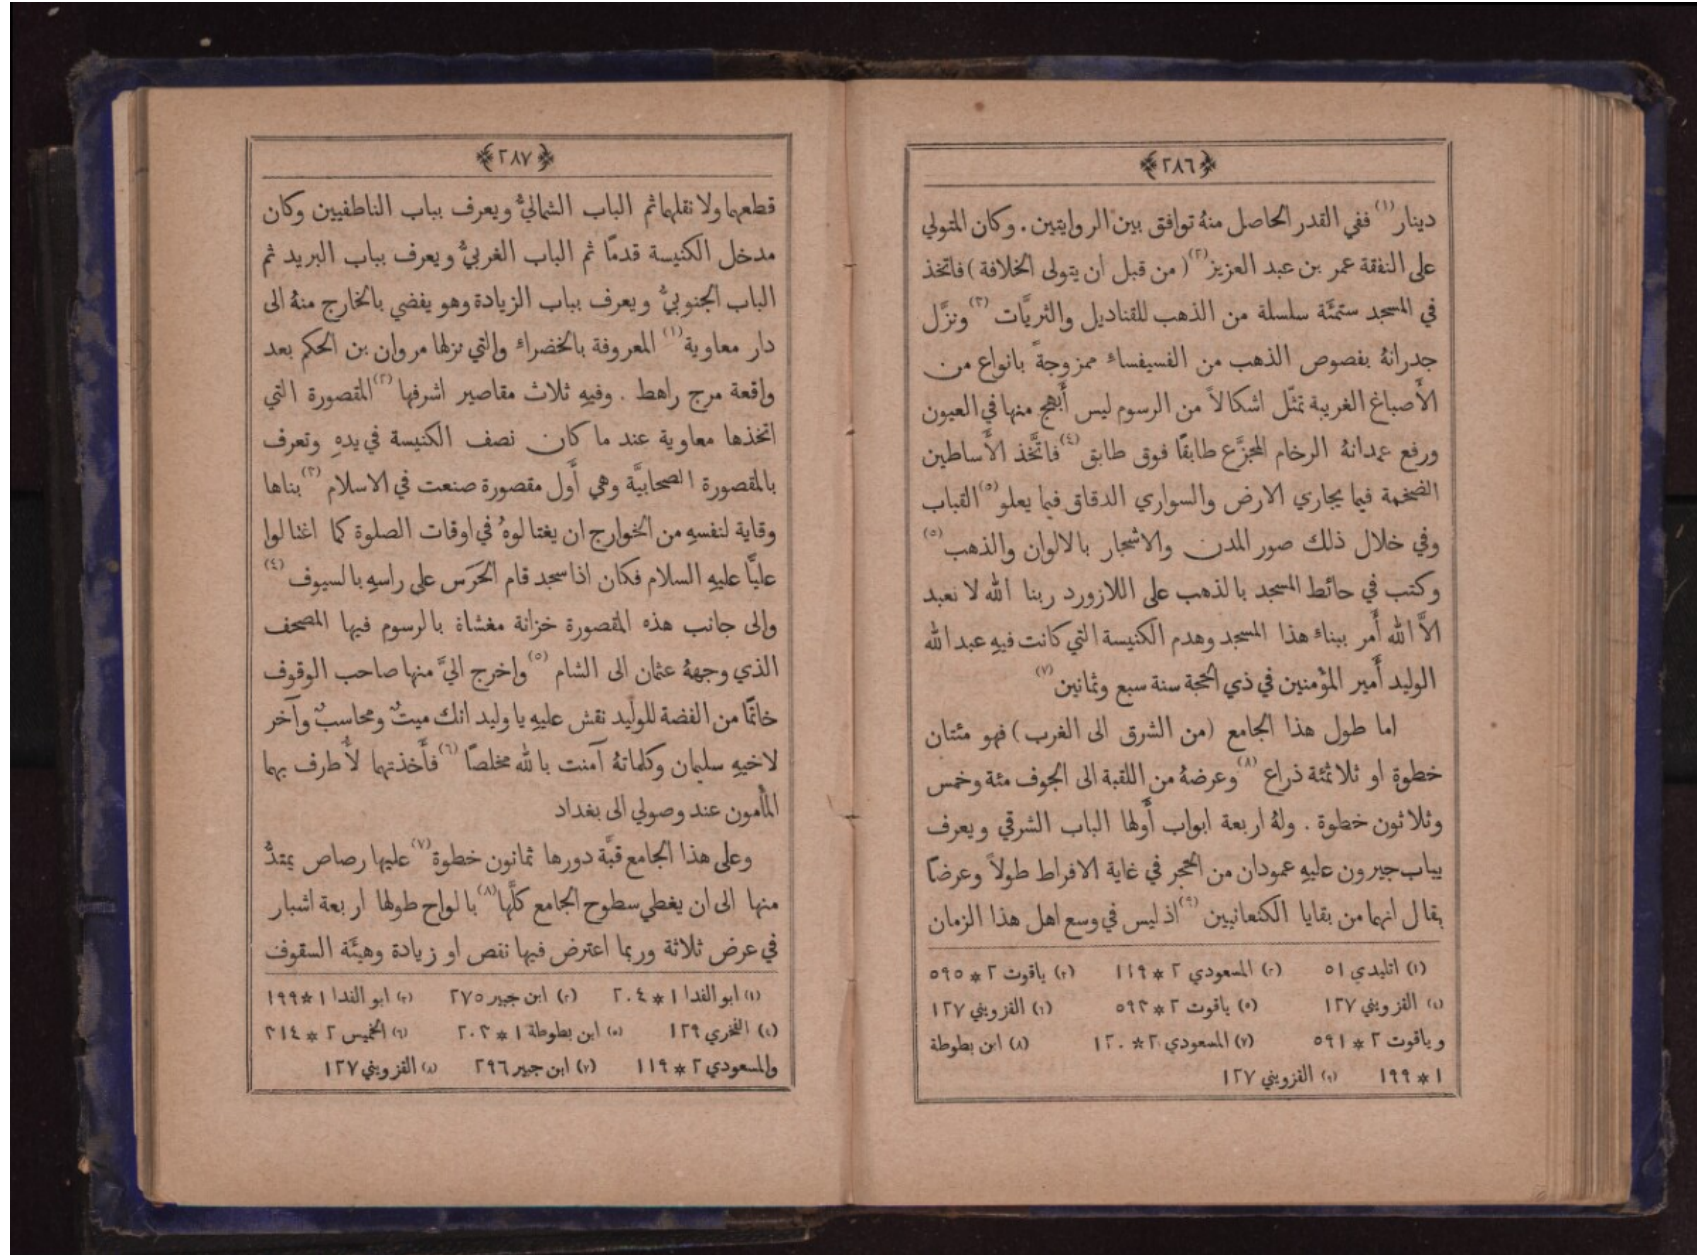 ﴿٢٨٦﴾
دينار(١) ففي القدر الحاصل منهُ توافق بين الروايتين . وكان المتولي
على النفقة عمر بن عبد العزيز(٢) ( من قبل ان يتولى الخلافة ) فاتخذ
في المسجد ستمئة سلسلة من الذهب للقناديل والثريَّات (٣) ونزَّل
جدرانهُ بفصوص الذهب من الفسيفساء ممزوجةً بانواع من
الأَصباغ الغريبة تمثّل اشكالاً من الرسوم ليس أَبهج منها في العيون
ورفع عمدانهُ الرخام المجزَّع طابقًا فوق طابق (٤) فاتَّخذ الأَساطين
الضخمة فيما يجاري الارض والسواري الدقاق فيما يعلو (٥) القباب
وفي خلال ذلك صور المدن والاشجار بالالوان والذهب (٥)
وكتب في حائط المسجد بالذهب على اللازورد ربنا الله لا نعبد
الاَّ الله أَمر ببناء هذا المسجد وهدم الكنيسة التي كانت فيهِ عبد الله
الوليد أَمير المؤمنين في ذي الحجة سنة سبع وثمانين (٧)
اما طول هذا الجامع (من الشرق الى الغرب) فهو مئتان
خطوة او ثلاثمئة ذراع (٨) وعرضهُ من القبة الى الجوف مئة وخمس
وثلاثون خطوة . ولهُ اربعة ابواب أَولها الباب الشرقي ويعرف
بباب جيرون عليهِ عمودان من الحجر في غاية الافراط طولاً وعرضًا
يقال انهما من بقايا الكنعانيين (٩) اذ ليس في وسع اهل هذا الزمان
(١) اتليدي ٥١ (٢) المسعودي ٢ * ١١٩ (٣) ياقوت ٢ * ٥٩٥
(٤) القزويني ١٢٧ (٥) ياقوت ٢ * ٥٩٣ (٦) القزويني ١٢٧
وياقوت ٢ * ٥٩١ (٧) المسعودي ٢ * ١٢٠ (٨) ابن بطوطة
١ * ١٩٩ (٩) القزويني ١٢٧
﴿٢٨٧﴾
قطعها ولا نقلها ثم الباب الشماليُّ ويعرف بباب الناطفيين وكان
مدخل الكنيسة قدمًا ثم الباب الغربيُّ ويعرف بباب البريد ثم
الباب الجنوبيُّ ويعرف بباب الزيادة وهو يفضي بالخارج منهُ الى
دار معاوية (١) المعروفة بالخضراء والتي نزلها مروان بن الحكم بعد
واقعة مرج راهط . وفيهِ ثلاث مقاصير اشرفها (٢) المقصورة التي
اتخذها معاوية عند ما كان نصف الكنيسة في يدهِ وتعرف
بالمقصورة الصحابيَّة وهي أَول مقصورة صنعت في الاسلام (٣) بناها
وقاية لنفسهِ من الخوارج ان يغتالوهُ في اوقات الصلوة كما اغتالوا
عليًّا عليهِ السلام فكان اذا سجد قام الحَرَس على راسهِ بالسيوف (٤)
والى جانب هذه المقصورة خزانة مغشاة بالرسوم فيها المصحف
الذي وجههُ عثمان الى الشام (٥) واخرج اليَّ منها صاحب الوقوف
خاتمًا من الفضة للوليد نقش عليهِ يا وليد انك ميتٌ ومحاسبٌ وآخر
لاخيهِ سليمان وكلماتهُ آمنت بالله مخلصًا (٦) فأَخذتهما لأُطرف بهما
المأمون عند وصولي الى بغداد
وعلى هذا الجامع قبَّة دورها ثمانون خطوة (٧) عليها رصاص يمتدُّ
منها الى ان يغطي سطوح الجامع كلَّها (٨) بالواح طولها اربعة اشبار
في عرض ثلاثة وربما اعترض فيها نقص او زيادة وهيئة السقوف
(١) ابو الفدا ١ * ٢٠٤ (٢) ابن جبير ٢٧٥ (٣) ابو الفدا ١ * ١٩٩
(٤) الفخري ١٢٩ (٥) ابن بطوطة ١ * ٢٠٢ (٦) الخميس ٢ * ٣١٤
والمسعودي ٢ * ١١٩ (٧) ابن جبير ٢٩٦ (٨) القزويني ١٢٧